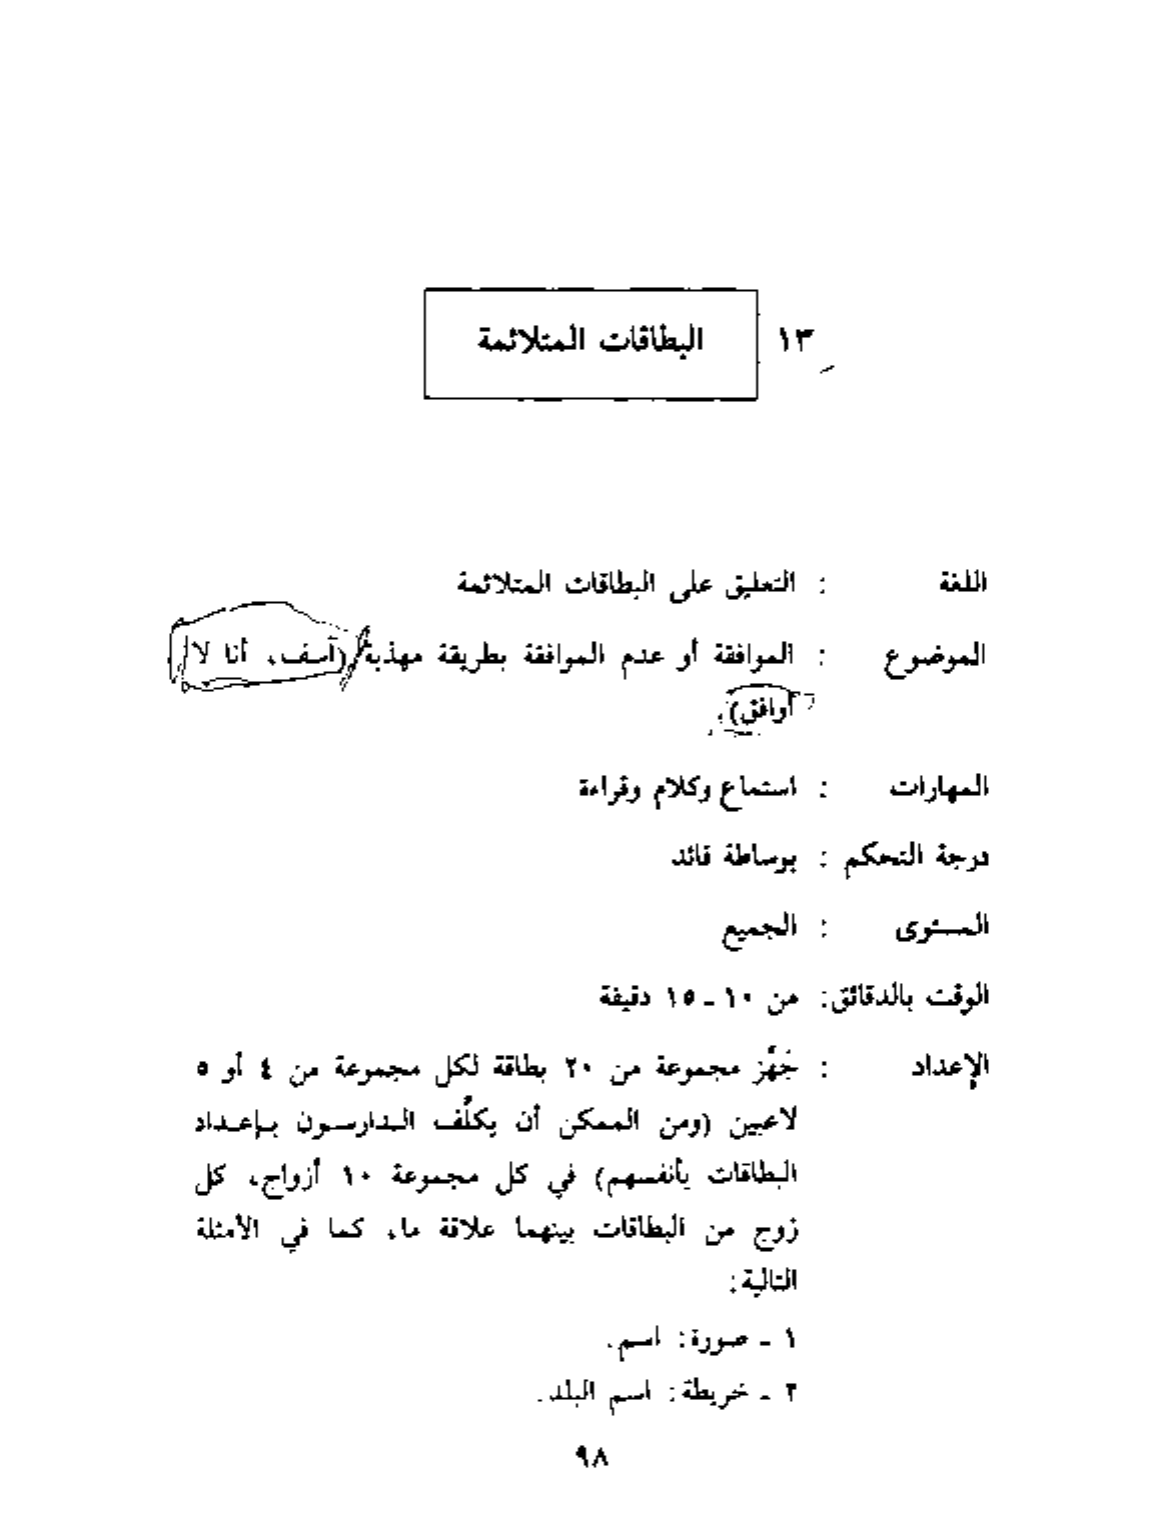 ١٣ البطاقات المتلائمة
اللغة : التعليق على البطاقات المتلائمة
الموضوع : الموافقة أو عدم الموافقة بطريقة مهذبة (آسف، أنا لا
أوافق).
المهارات : استماع وكلام وقراءة
درجة التحكم : بوساطة قائد
المستوى : الجميع
الوقت بالدقائق: من ١٠ ـ ١٥ دقيقة
الإعداد : جَهِّز مجموعة من ٢٠ بطاقة لكل مجموعة من ٤ أو ٥
لاعبين (ومن الممكن أن يكلَّف الدارسون بإعداد
البطاقات بأنفسهم) في كل مجموعة ١٠ أزواج، كل
زوج من البطاقات بينهما علاقة ما، كما في الأمثلة
التالية:
١ ـ صورة: اسم.
٢ ـ خريطة: اسم البلد.
٩٨